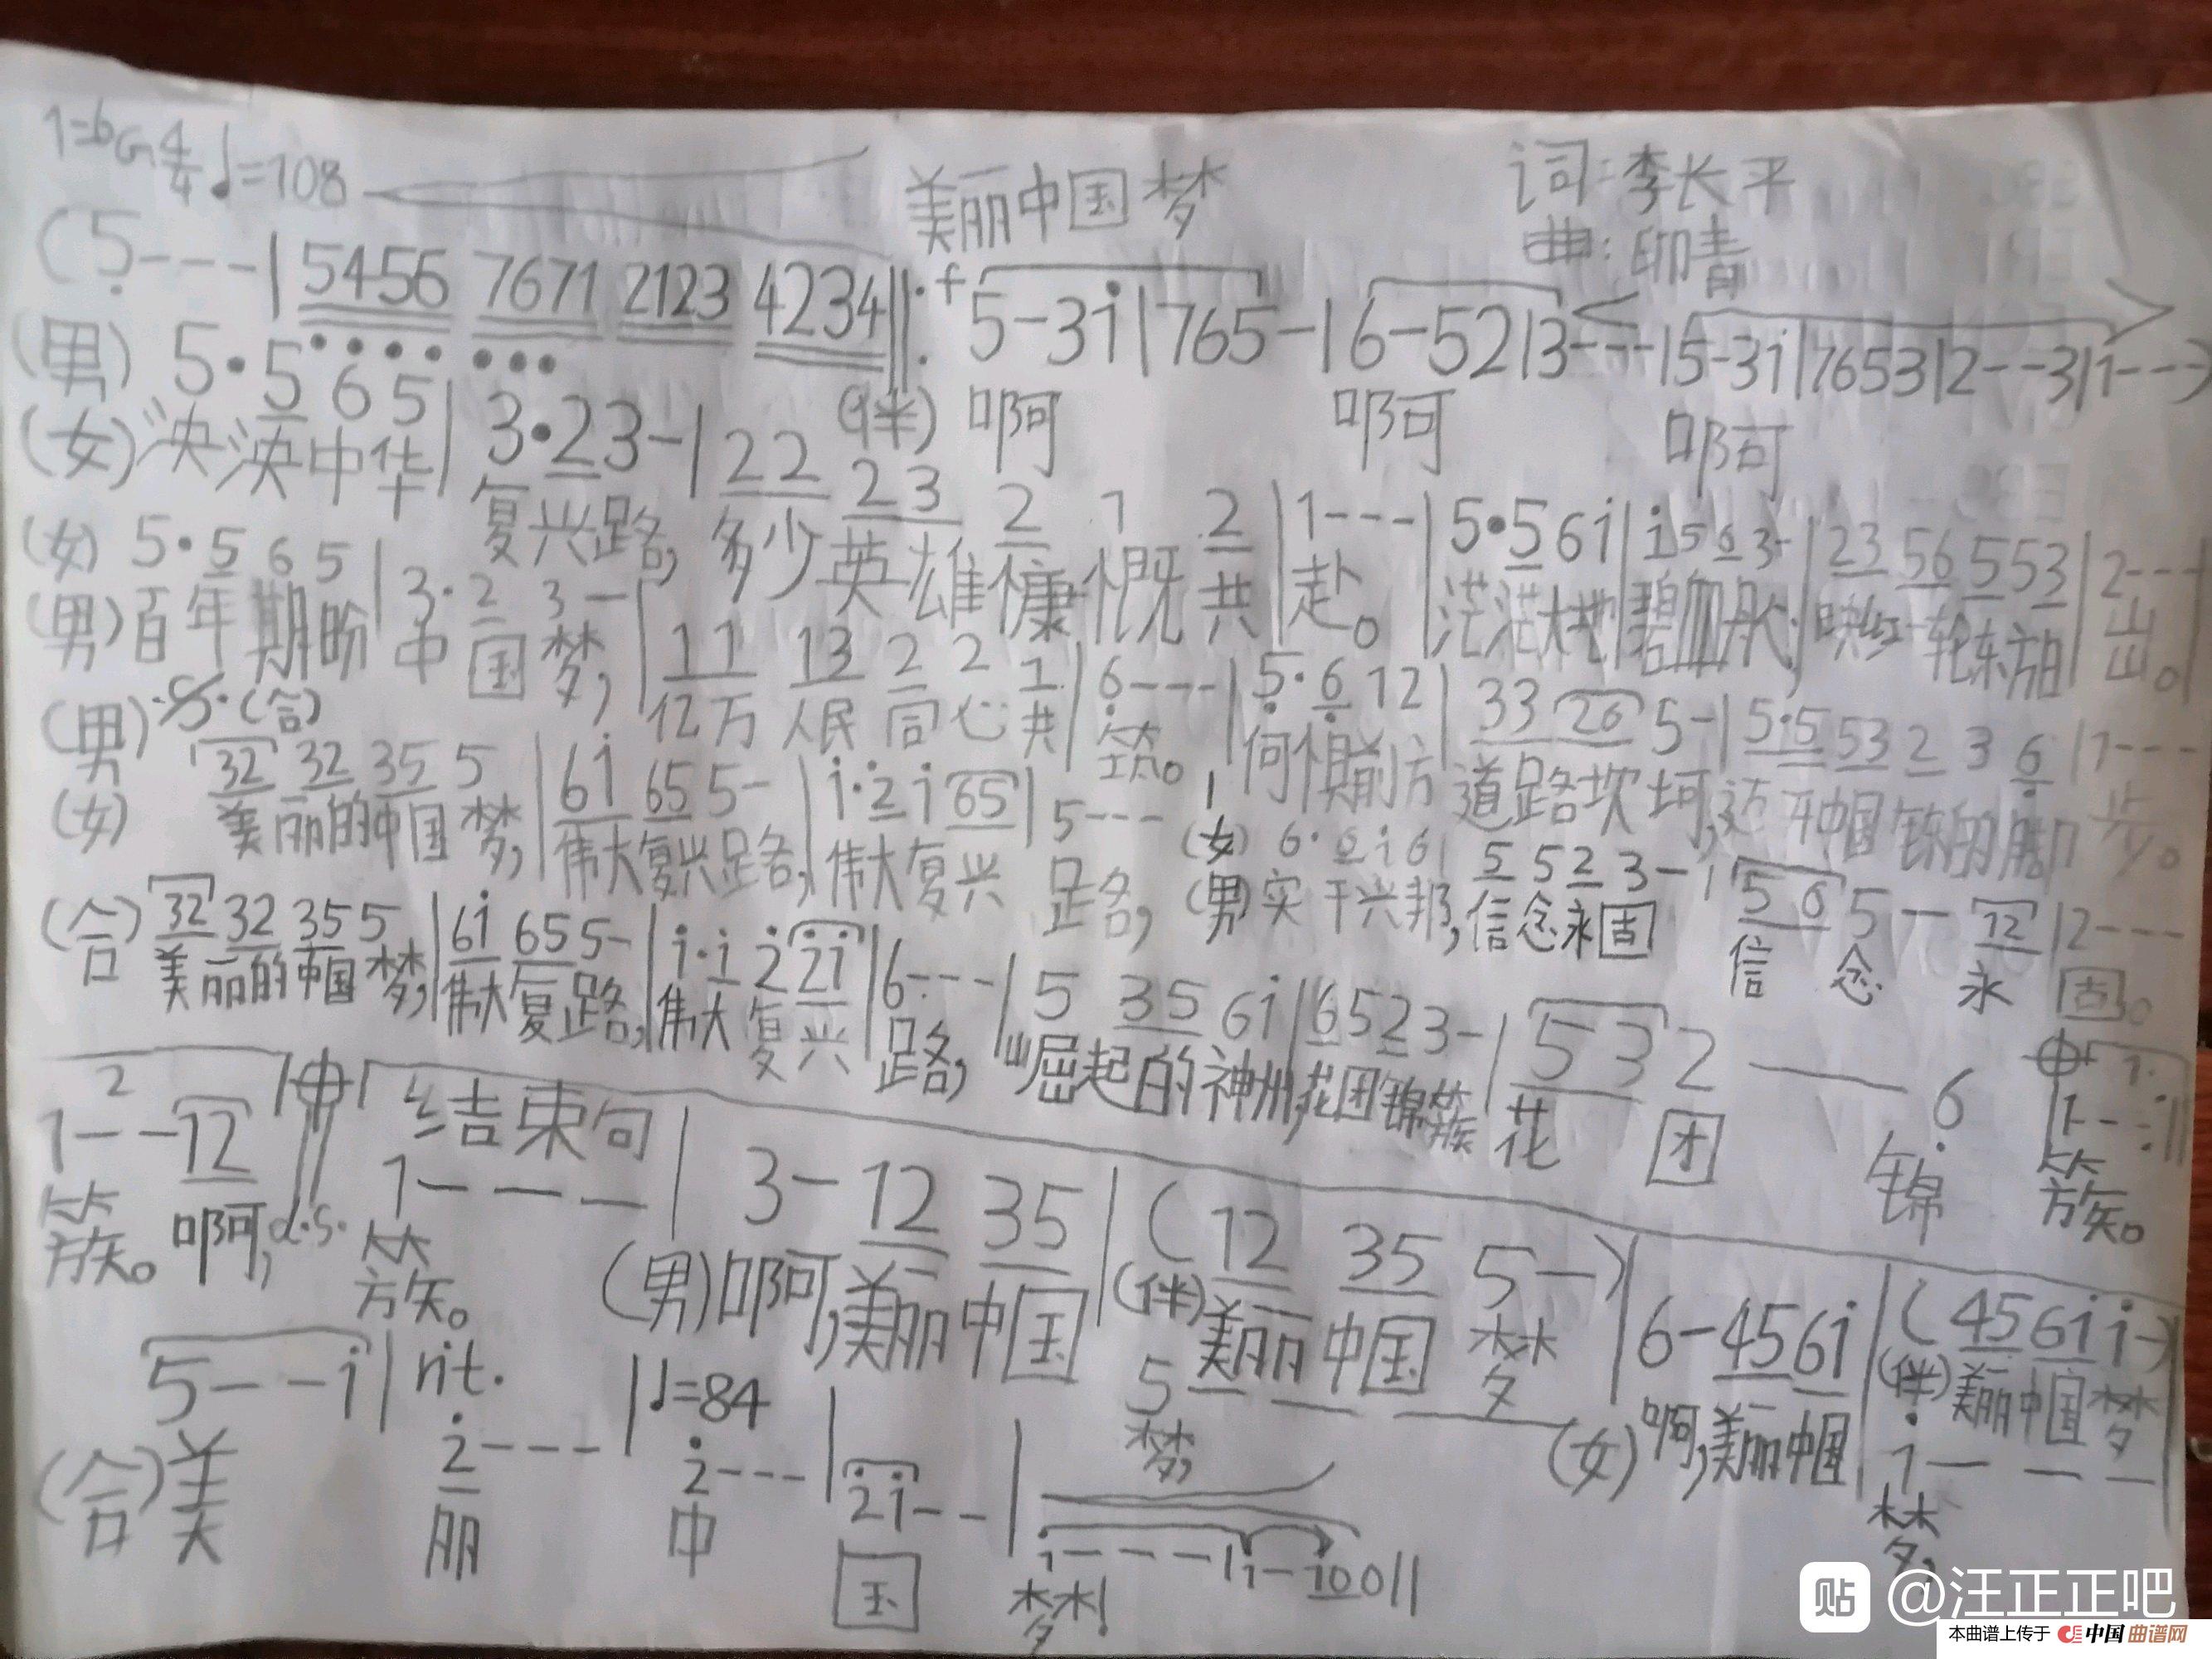 1=bG 4/4 ♩=108
美丽中国梦
词:李长平
曲:印青
(5---|5456 7671 2123 4234‖: f 5-3i|765-|6-52|3---|5-3i|7653|2--3|1---)
(伴) 啊 啊 啊
(男) 5·5 6 5|3·2 3-|22 23 2 1 2|1---|5·5 6i|i 5 6 3-|23 56 5 53|2---|
(女) 泱泱中华 复兴路,多少英雄慷慨共赴。茫茫大地碧血丹心,映红一轮东方日出。
(女) 5·5 6 5|3·2 3-|11 13 2 2 1|6---|5·6 12|33 26 5-|5·5 53 2 3 6|1---
(男) 百年期盼中国梦,亿万人民同心共筑。何惧前方道路坎坷,迈开中国的脚步。
(男) 𝄋 (合)
32 32 35 5|6i 65 5-|i·2 i 65|5--- (女) 6·6 i 6|5 5 2 3-|5 6 5-12|2---
(女) 美丽的中国梦,伟大复兴路,伟大复兴路,(男)实干兴邦,信念永固 信念永固。
(合) 32 32 35 5|6i 65 5-|i·i 2 2i|6---|5 35 6i|6 5 2 3-|5 3 2--6
美丽的中国梦,伟大复兴路,伟大复兴路,崛起的神州,花团锦簇 花团锦
1.
1--:‖
簇。
2
1--12
簇。啊,d.s.
结束句
1---|3-12 35|(12 35 5-)|6-45 6i|(45 6i i-)
簇。(男)啊,美丽中国(伴)美丽中国梦 (女)啊,美丽中国(伴)美丽中国梦
5---
梦,
i---
梦,
5--i|rit. 2---|♩=84 2---|2i--|i---|i-i00‖
(合)美丽中国梦!
贴 @汪正正吧
本曲谱上传于 中国曲谱网